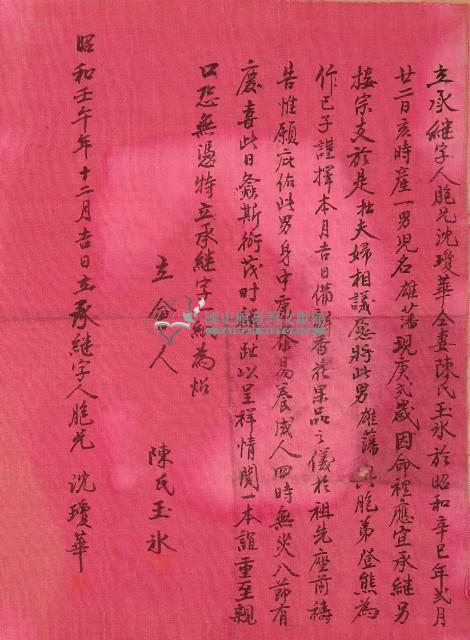 立承繼字人胞兄沈瓊華仝妻陳氏玉氷於昭和辛巳年弍月
廿二日亥時產一男兒名雄藩現庚弍歲因命裡應宜承継另
接宗支於是拙夫婦相議愿將此男雄藩 胞弟登熊為
作己子謹擇本月吉日備 香花果品之儀於祖先座前禱
告惟願庇佑此男身中康泰易養成人四時無災八節有
慶喜此日螽斯衍茂时 趾以呈祥情関一本誼重至親
口恐無憑特立承継字一紙為炤
立 人 陳氏玉氷
昭和壬午年十二月吉日立承継字人胞兄 沈瓊華
國史館臺灣文獻館